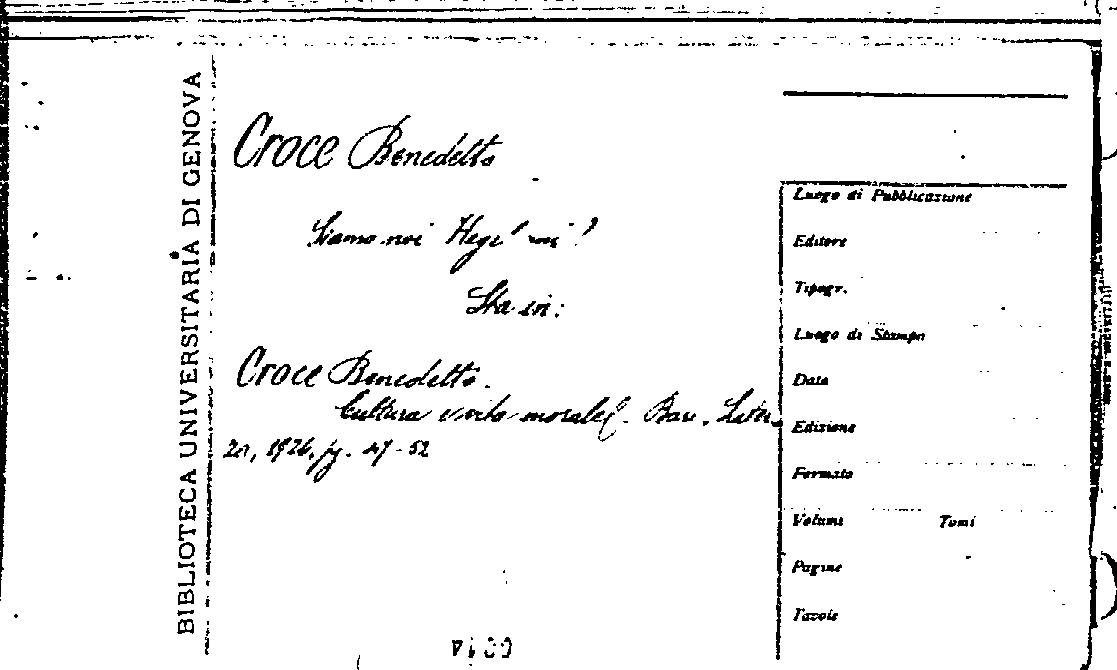 BIBLIOTECA UNIVERSITARIA DI GENOVA
Croce Benedetto
Siamo noi Hegeliani?
Sta in:
Croce Benedetto.
Cultura e vita morale. Bari, Later-
za, 1926, pg. 47-52
Luogo di Pubblicazione
Editore
Tipogr.
Luogo di Stampa
Data
Edizione
Formato
Volumi Tomi
Pagine
Tavole